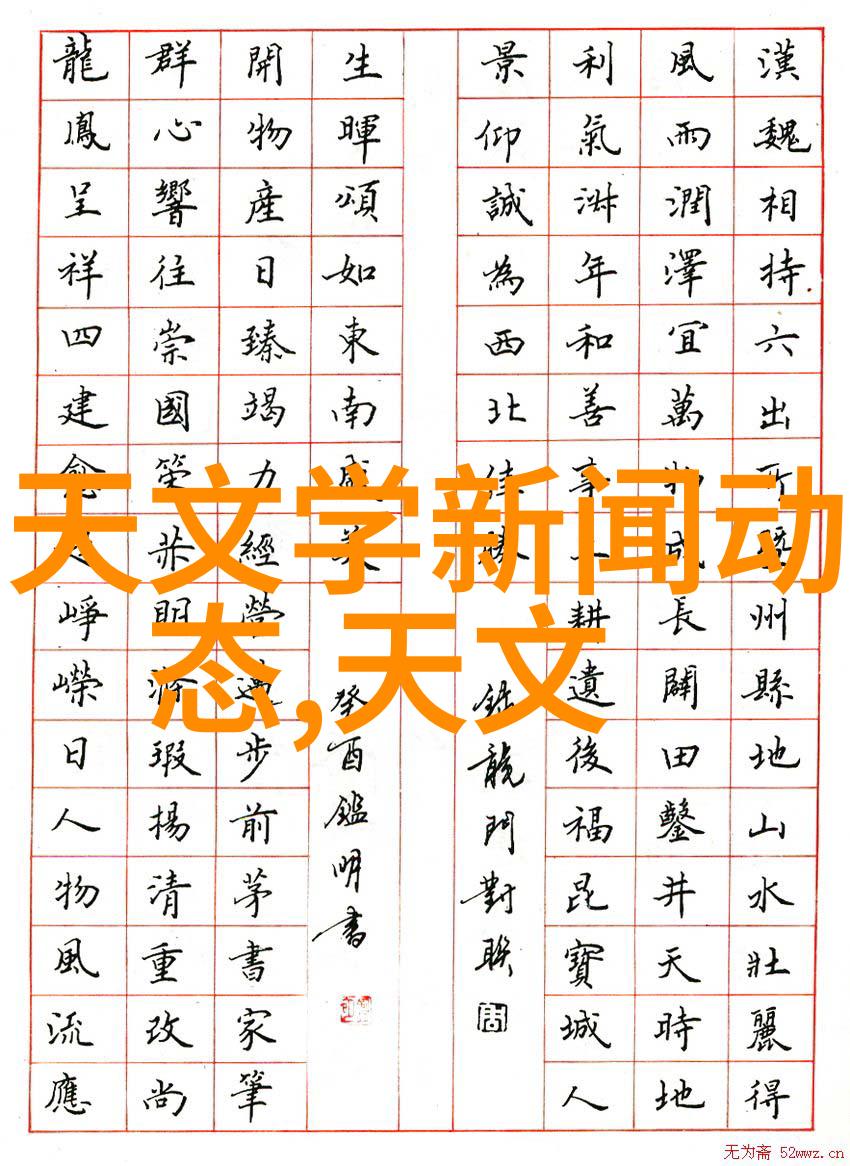 漢魏相持六出所州縣地山水壯麗得
風雨潤澤宜萬物成長闢田鑿井天時地
利氣淑年和善事耕遺後福昆寶城人
景仰誠為西北佳勝
錄龍門對聯
生暉頌如東南盛美
癸酉鑑明書
開物產日臻竭力經營邁步前茅書家筆
群心響往崇國策明滌瑕揚清重改尚
龍鳳呈祥四建愈崢嶸日人物風流應
天文学新闻动
态,天文
无为斋 52wwz.cn